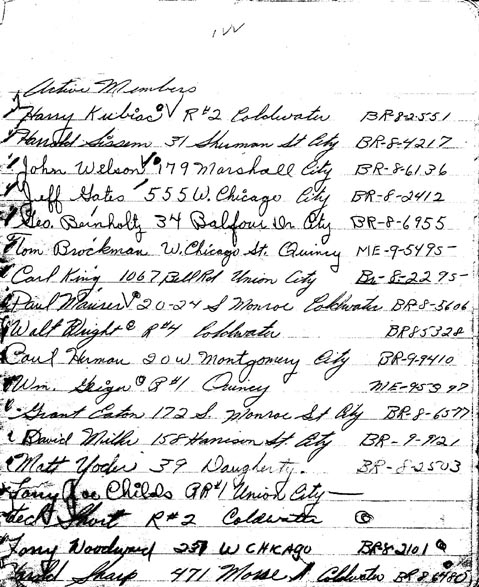 Active Members
Harry Kubiac R#2 Coldwater BR-8-2551
Harrold Sissem 31 Shurman St City BR-8-4217
John Welson 179 Marshall City BR-8-6136
Jeff Gates 555 W. Chicago City BR-8-2412
Geo. Beinholtz 34 Balfour Dr. City BR-8-6955
Tom Brockman W. Chicago St. Quincy ME-9-5495
Carl King 1067 Bell Rd Union City Br-8-2295
Paul 20-24 S Monroe Coldwater BR-8-5606
Walt Blight R#4 Coldwater BR85328
Paul Herman 20 W Montgomery City BR-9-9410
Wm. R#1 Quincy
Grant Eaton 172 S. Monroe St City BR-8-6577
David Miller 158 Harrison St City BR-9-9121
Matt Yoder 39 Daugherty. BR-8-2503
Tony Joe Childs RR#1 Union City
Short R#2 Coldwater
Tony Woodward 237 W CHICAGO BR8-2101
Harold Sharp 471 Morse St Coldwater